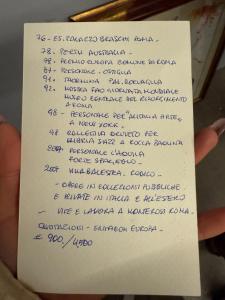 76 - ES. PALAZZO BRASCHI ROMA.
78. PERTH AUSTRALIA -
78 - PREMIO EUROPA COMUNE DI ROMA
87 - PERSONALE - OSTIGLIA
91 - TAORMINA PAL.
92. MOSTRA FAO GIORNATA MONDIALE
MUSEO CENTRALE DEL RISORGIMENTO
A ROMA
98 - PERSONALE PER "ALITALIA ARTE"
A NEW YORK.
98 COLLETTIVA ORVIETO PER
UMBRIA JAZZ A ROCCA PAOLINA
PERSONALE L'AQUILA
FORTE SPAGNOLO -
VILLA BALESTRA.
- OPERE IN COLLEZIONI PUBBLICHE
E PRIVATE IN ITALIA E ALL'ESTERO
- VIVE E LAVORA A MONTEROSI ROMA.
QUOTAZIONI - EUROPA -
€ 900,/4500